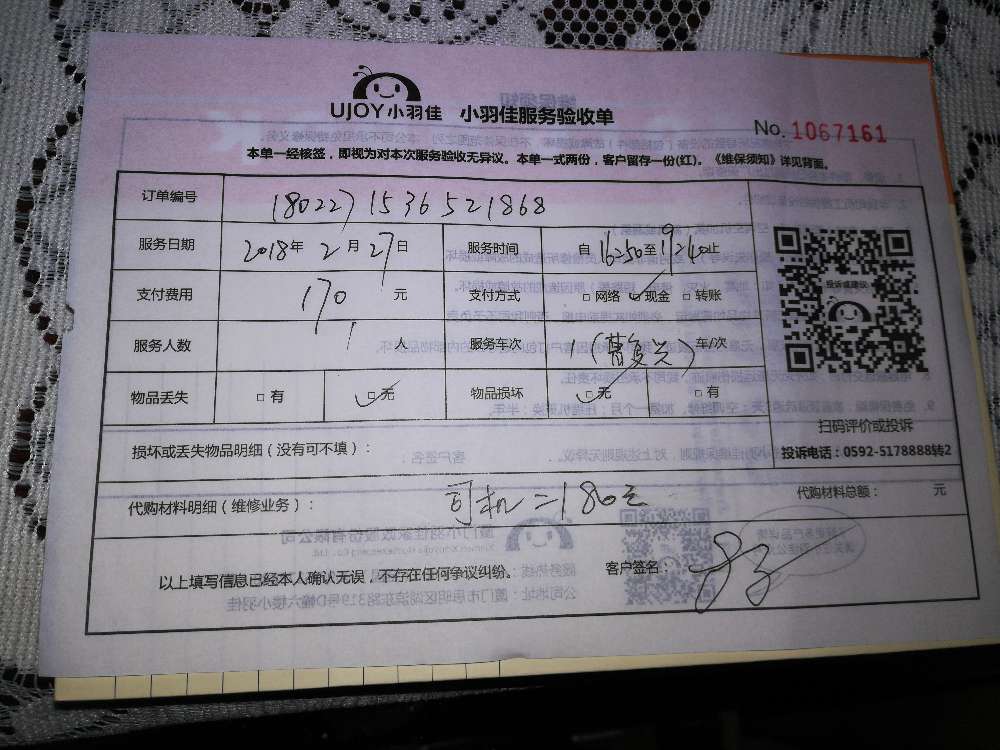 UJOY小羽佳 小羽佳服务验收单
No. 1067161
本单一经核签，即视为对本次服务验收无异议。本单一式两份，客户留存一份(红)。《维保须知》详见背面。
订单编号 1802271536521868
服务日期 2018年 2月 27日 服务时间 自 16:50至19:40止
支付费用 170 元 支付方式 □网络 ☑现金 □转账
服务人数 1 人 服务车次 1 车/次
物品丢失 □有 ☑无 物品损坏 ☑无 □有
投诉或建议
扫码评价或投诉
投诉电话：0592-5178888转2
损坏或丢失物品明细（没有可不填）：
代购材料明细（维修业务）： 司机=180元 代购材料总额： 元
以上填写信息已经本人确认无误，不存在任何争议纠纷。 客户签名：